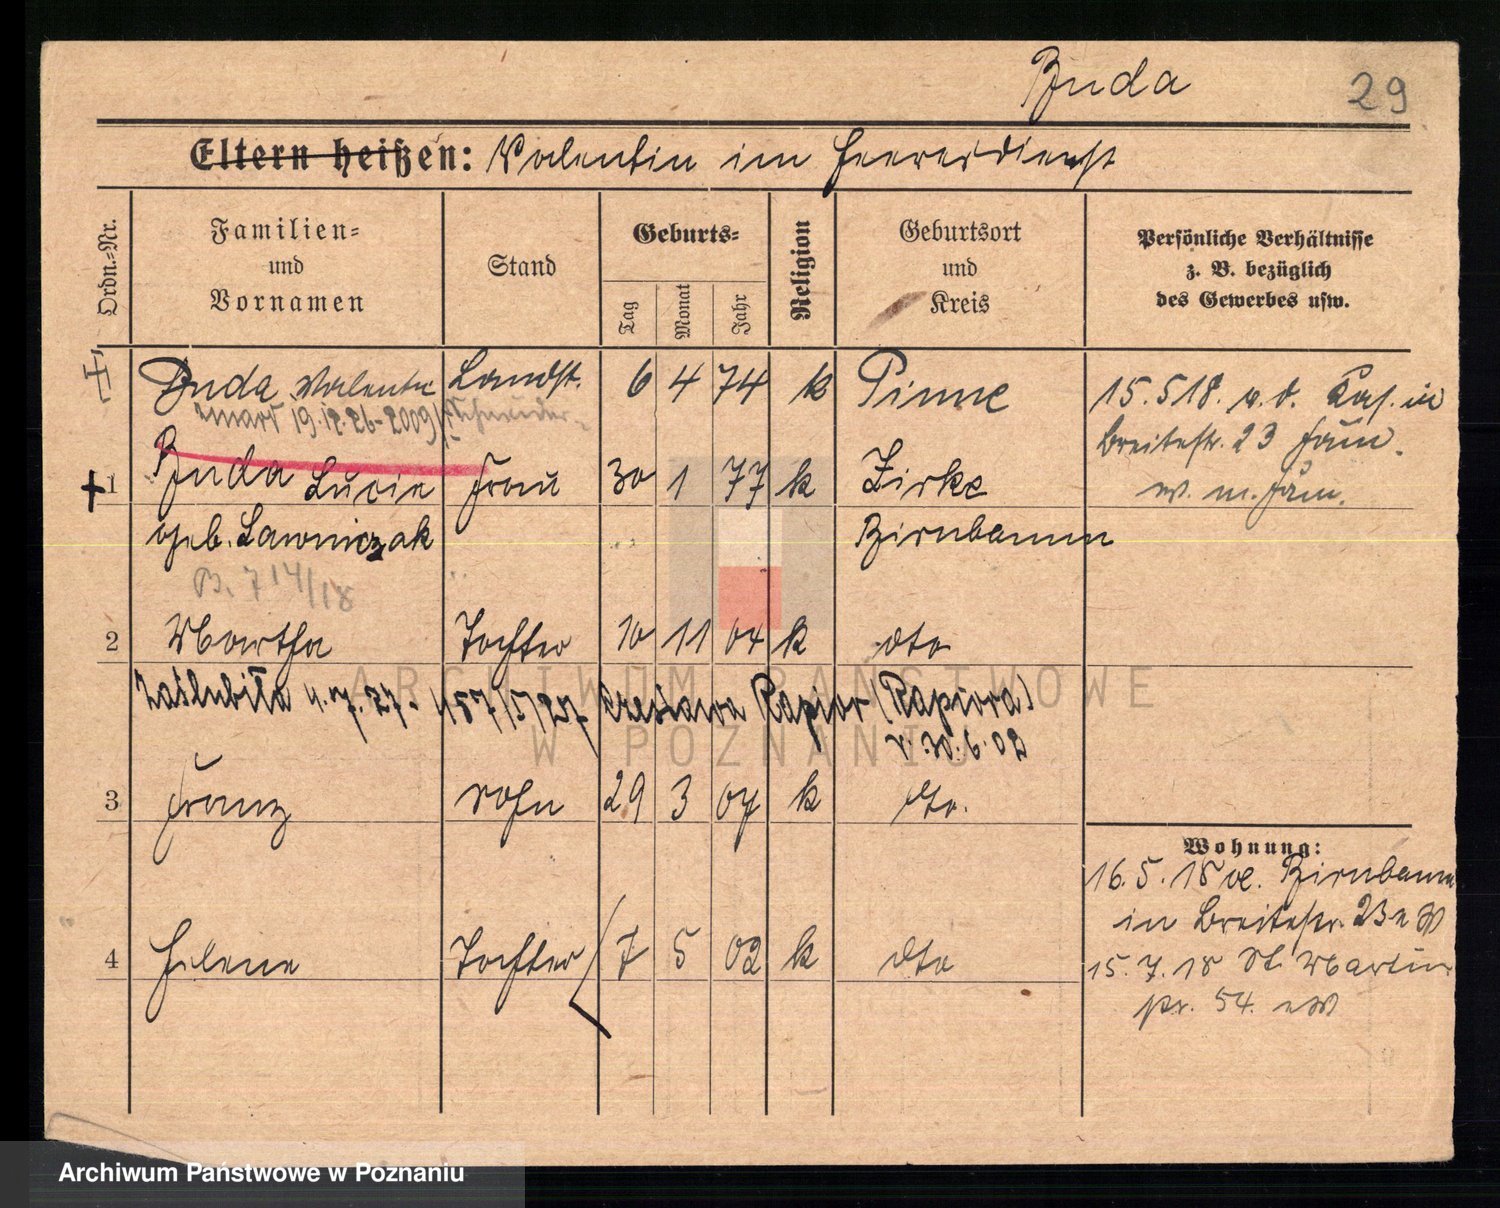 Buda 29
Eltern heißen: Valentin im Heeresdienst
Ordn.-Nr.
Familien-
und
Vornamen
Stand
Geburts-
Tag
Monat
Jahr
Religion
Geburtsort
und
Kreis
Persönliche Verhältnisse
z. B. bezüglich
des Gewerbes usw.
Buda Valentin Landst. 6 4 74 k Pinne
zmarł 19.12.26 - 2009 Schneider
15.5.18. v. d. in
Breitestr. 23
1 Buda Lucie Frau 30 1 77 k Zirke
geb. Lawniczak Birnbaum
B. 714/18
2 Martha Tochter 10 11 04 k dto
zaślubiła 4.7.27. Czesława Rapior (Rapiora)
3 Franz Sohn 29 3 07 k dto.
4 Helene Tochter 7 5 02 k dto
Wohnung:
16.5.18 Birnbaum
in Breitestr. 23
15.7.18 St. Martin
54.
ARCHIWUM PAŃSTWOWE
W POZNANIU
Archiwum Państwowe w Poznaniu